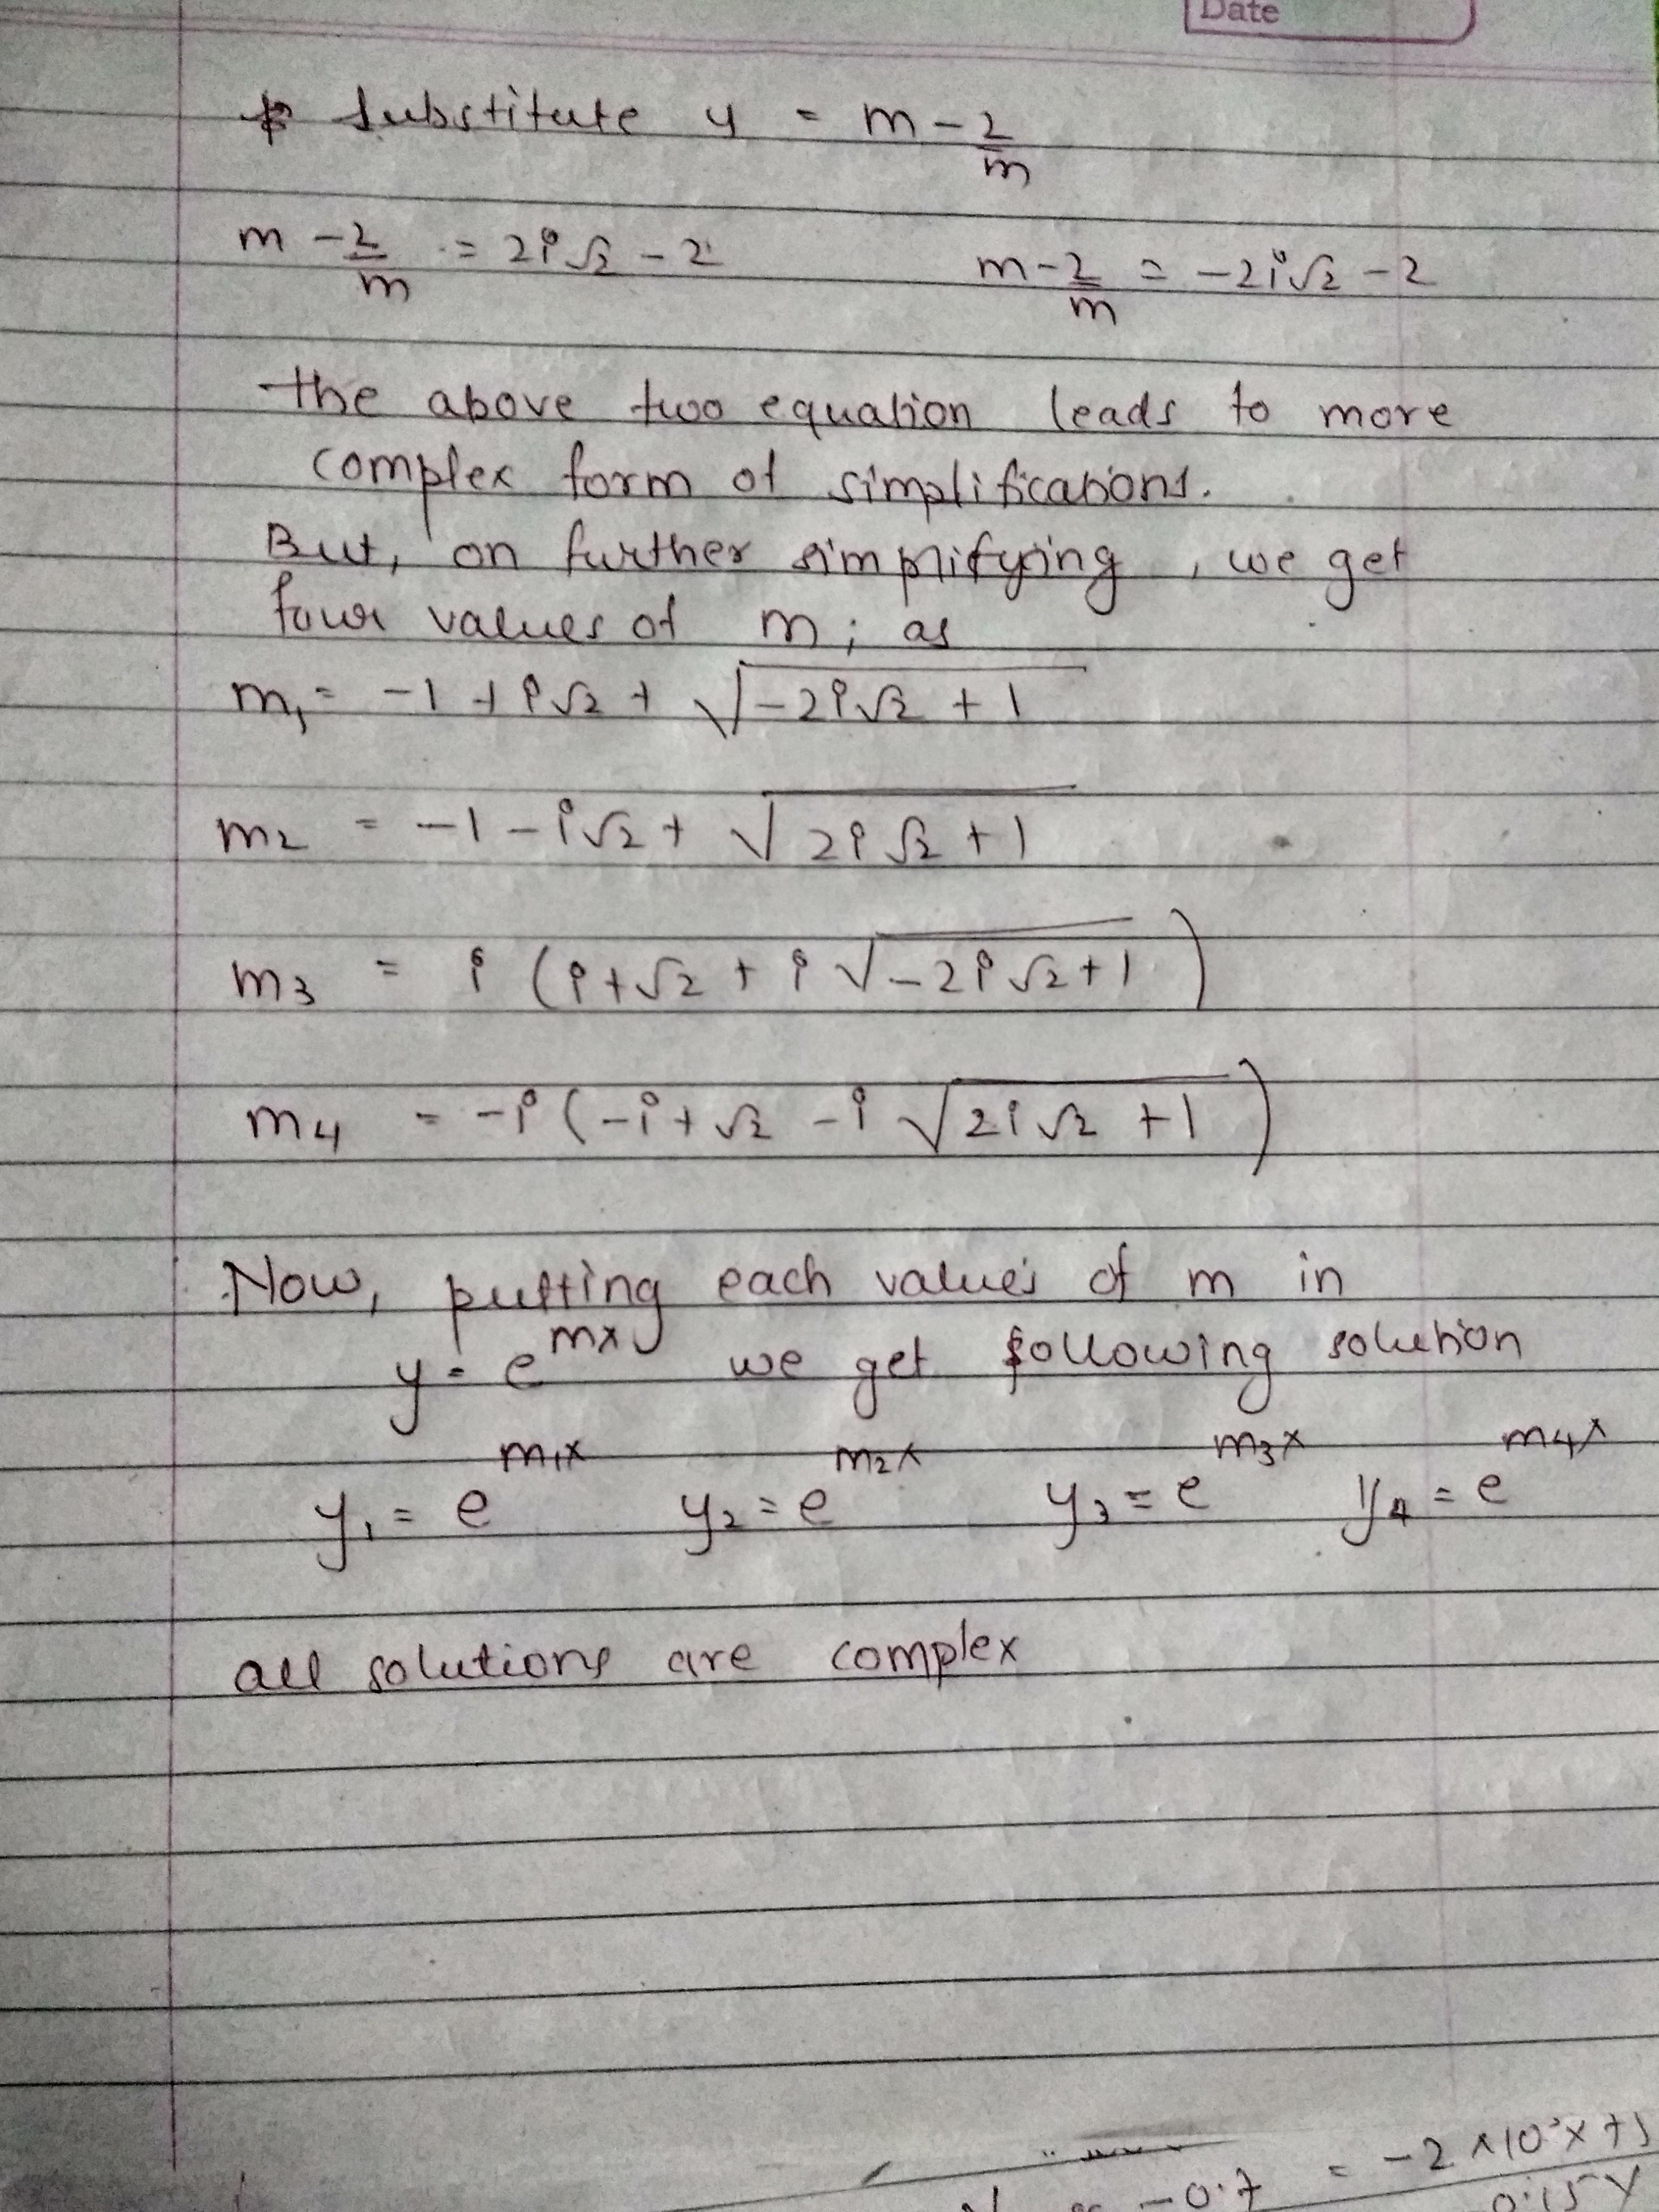 Date
Substitute y = m - 2/m
m - 2/m = 2i√2 - 2    m - 2/m = -2i√2 - 2
the above two equation leads to more
complex form of simplifications.
But, on further simplifying, we get
four values of m; as
m₁ = -1 + i√2 + √(-2i√2 + 1)
m₂ = -1 - i√2 + √(2i√2 + 1)
m₃ = i (i + √2 + i √(-2i√2 + 1))
m₄ = -i (-i + √2 - i √(2i√2 + 1))
Now, putting each values of m in
y = e^mx we get following solution
y₁ = e^m₁x    y₂ = e^m₂x    y₃ = e^m₃x    y₄ = e^m₄x
all solutions are complex
-0.7 = -2 ×10